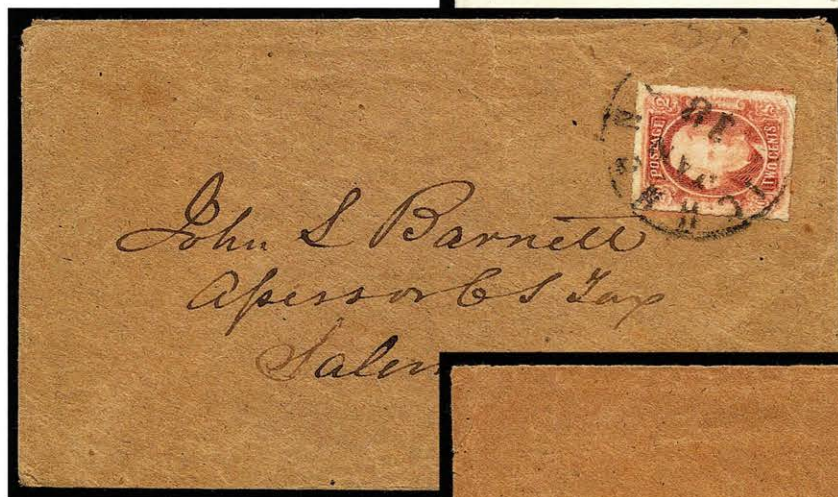 POSTAGE
TWO CENTS
John S Barnett
Assessor C S Tax
Salem